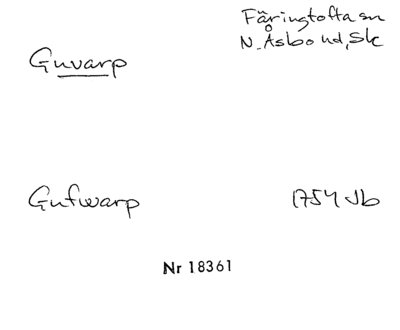 Färingtofta sn
N. Åsbo hd, Sk
Guvarp
Gufwarp 1754 Jb
Nr 18361